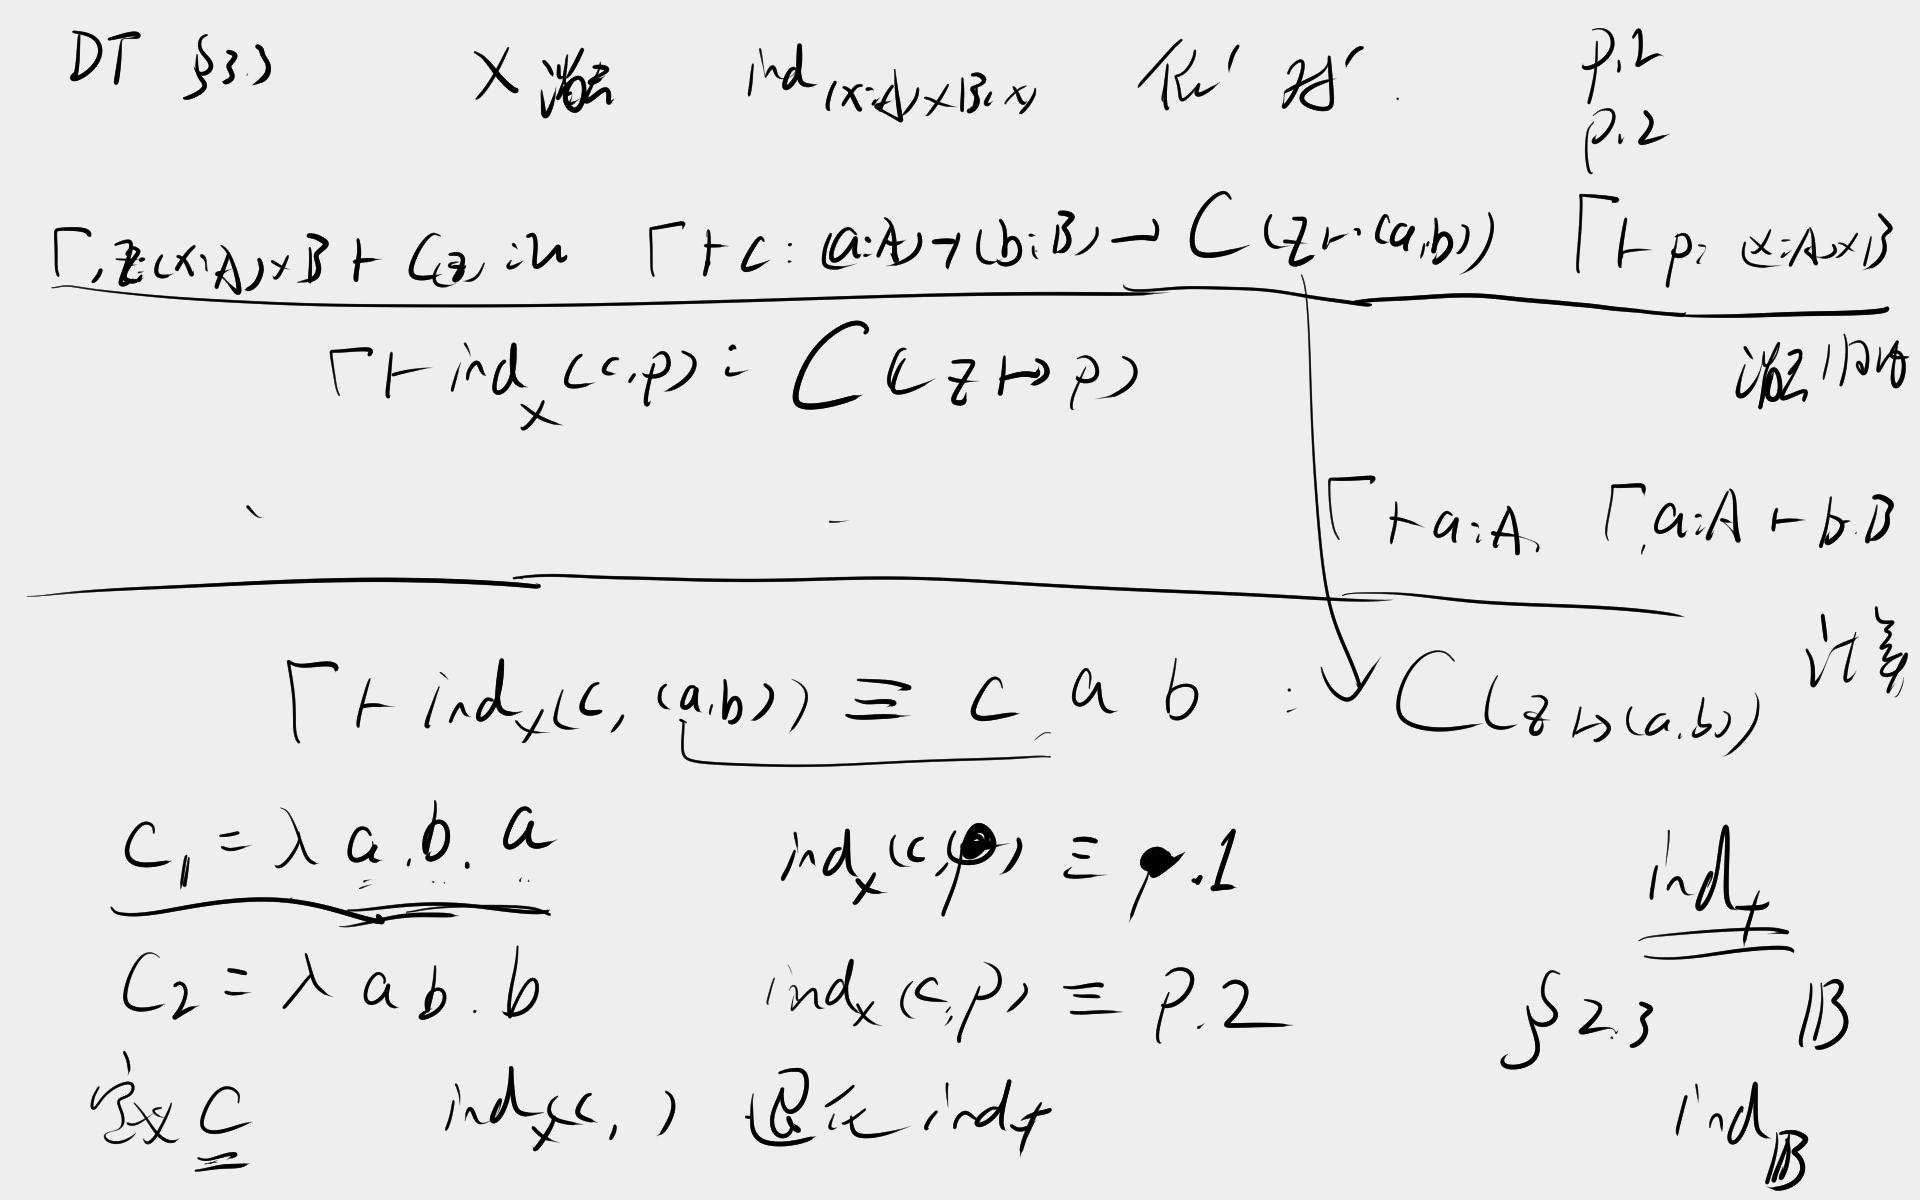 DT §3.3 × 消去 ind_{(x:A)×B(x)} 依' 对' p.1
p.2
Γ, z:(x:A)×B ⊢ C(z) : U Γ ⊢ c : (a:A)→(b:B)→ C(z↦(a,b)) Γ ⊢ p : (x:A)×B
Γ ⊢ ind_×(c,p) : C(z↦p) 消去
Γ ⊢ a:A, Γ, a:A ⊢ b:B
Γ ⊢ ind_×(c,(a,b)) ≡ c a b : C(z↦(a,b)) 计算
C₁ = λ a.b.a ind_×(c,p) ≡ p.1 ind_+
C₂ = λ a b.b ind_×(c,p) ≡ p.2 §2.3 𝔹
定义 C ind_×(c, ) 退化 ind_+ ind_𝔹